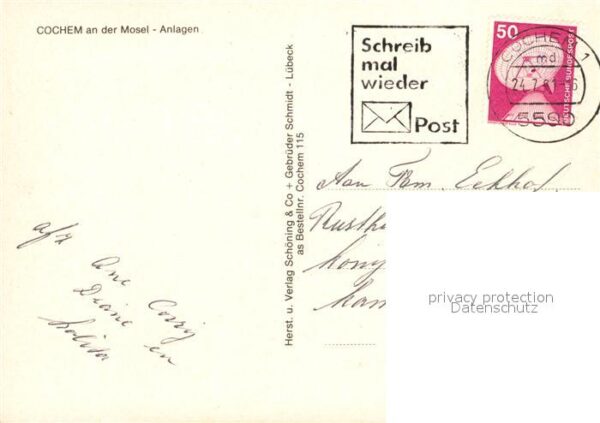 COCHEM an der Mosel - Anlagen
Schreib
mal
wieder
Post
50
DEUTSCHE BUNDESPOST
COCHEM 1
md
24.7.
5590
Herst. u. Verlag Schöning & Co + Gebrüder Schmidt - Lübeck
as Bestellnr. Cochem 115
Aan Fam. Eekhof
privacy protection
Datenschutz
afz
Diane en